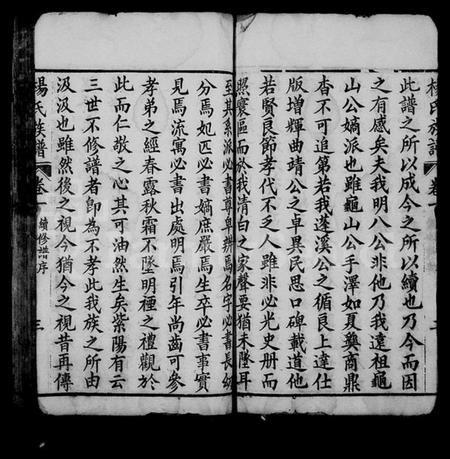 楊氏族譜 卷一
此譜之所以成今之所以續也乃今而因
之有感矣夫我明八公非他乃我遠祖龜
山公嫡派也雖龜山公手澤如夏彝商鼎
杳不可追第若我蓬溪公之循良上達仕
版增輝曲靖公之卓異民思口碑載道他
若賢良節孝代不乏人雖非必光史册而
照寰區而於我清白之家聲要猶未墜耳
至其系派必書尊卑辨焉名字必書長幼
分焉妃匹必書嫡庶嚴焉生卒必書事實
見焉流寓必書出處明焉引年尚齒可參
孝弟之經春露秋霜不墜明禋之禮觀於
此而仁敬之心其可油然生矣紫陽有云
三世不修譜者卽為不孝此我族之所由
汲汲也雖然後之視今猶今之視昔再傳
楊氏族譜 卷一 續修譜序 三